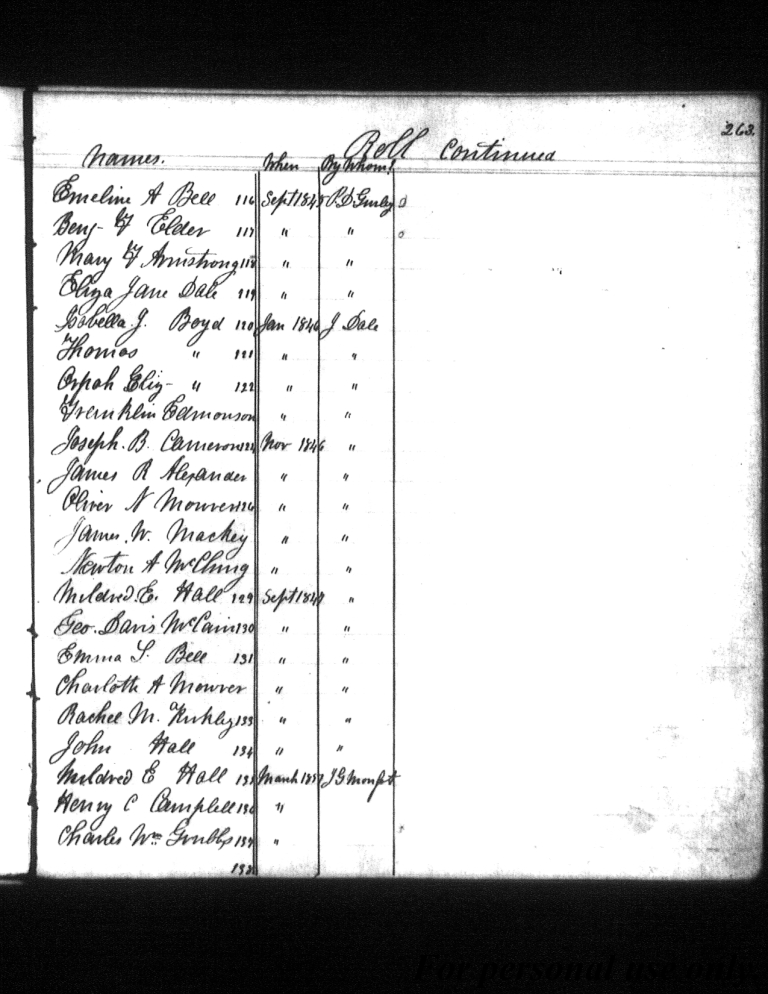 263.
Roll Continued
Names. When By Whom
Emeline A Bell 116 Sept 1845 P.D Gurley
Benj- F Elder 117 " "
Mary F Armstrong 118 " "
Eliza Jane Dale 119 " "
Isabella J. Boyd 120 Jan 1846 J Dale
Thomas " 121 " "
Orpah Eliz- " 122 " "
Fremklin Edmonson " "
Joseph. B. Cameron 124 Nov 1846 "
James R Alexander " "
Oliver N Mowrer 126 " "
James. W. Mackey " "
Newton A McClung " "
Mildred. E. Hall 129 Sept 184 "
Geo. Davis McCain 130 " "
Emma S. Bell 131 " "
Charlotte A Mowrer " "
Rachel M. Kirkley 133 " "
John Hall 134 " "
Mildred E Hall 135 March J G Monfort
Henry C Campbell 136 "
Charles Wm Grubbs 137 "
138
For personal use only.